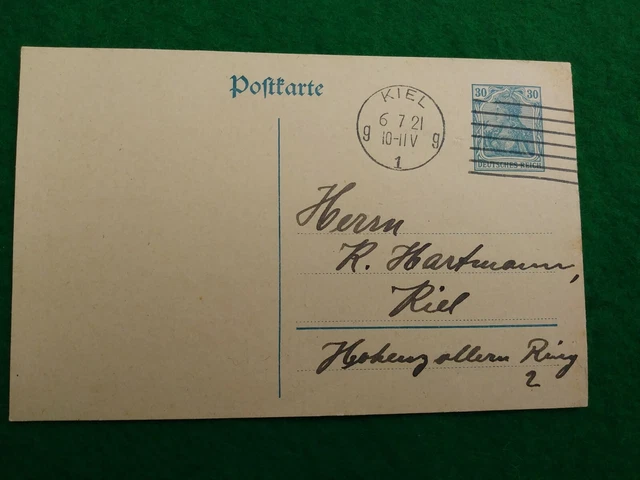 Postkarte
KIEL
6 7 21
10-11 V
g g
1
30 30
DEUTSCHES REICH
Herrn
R. Hartmann,
Kiel
Hohenzollern Ring
2